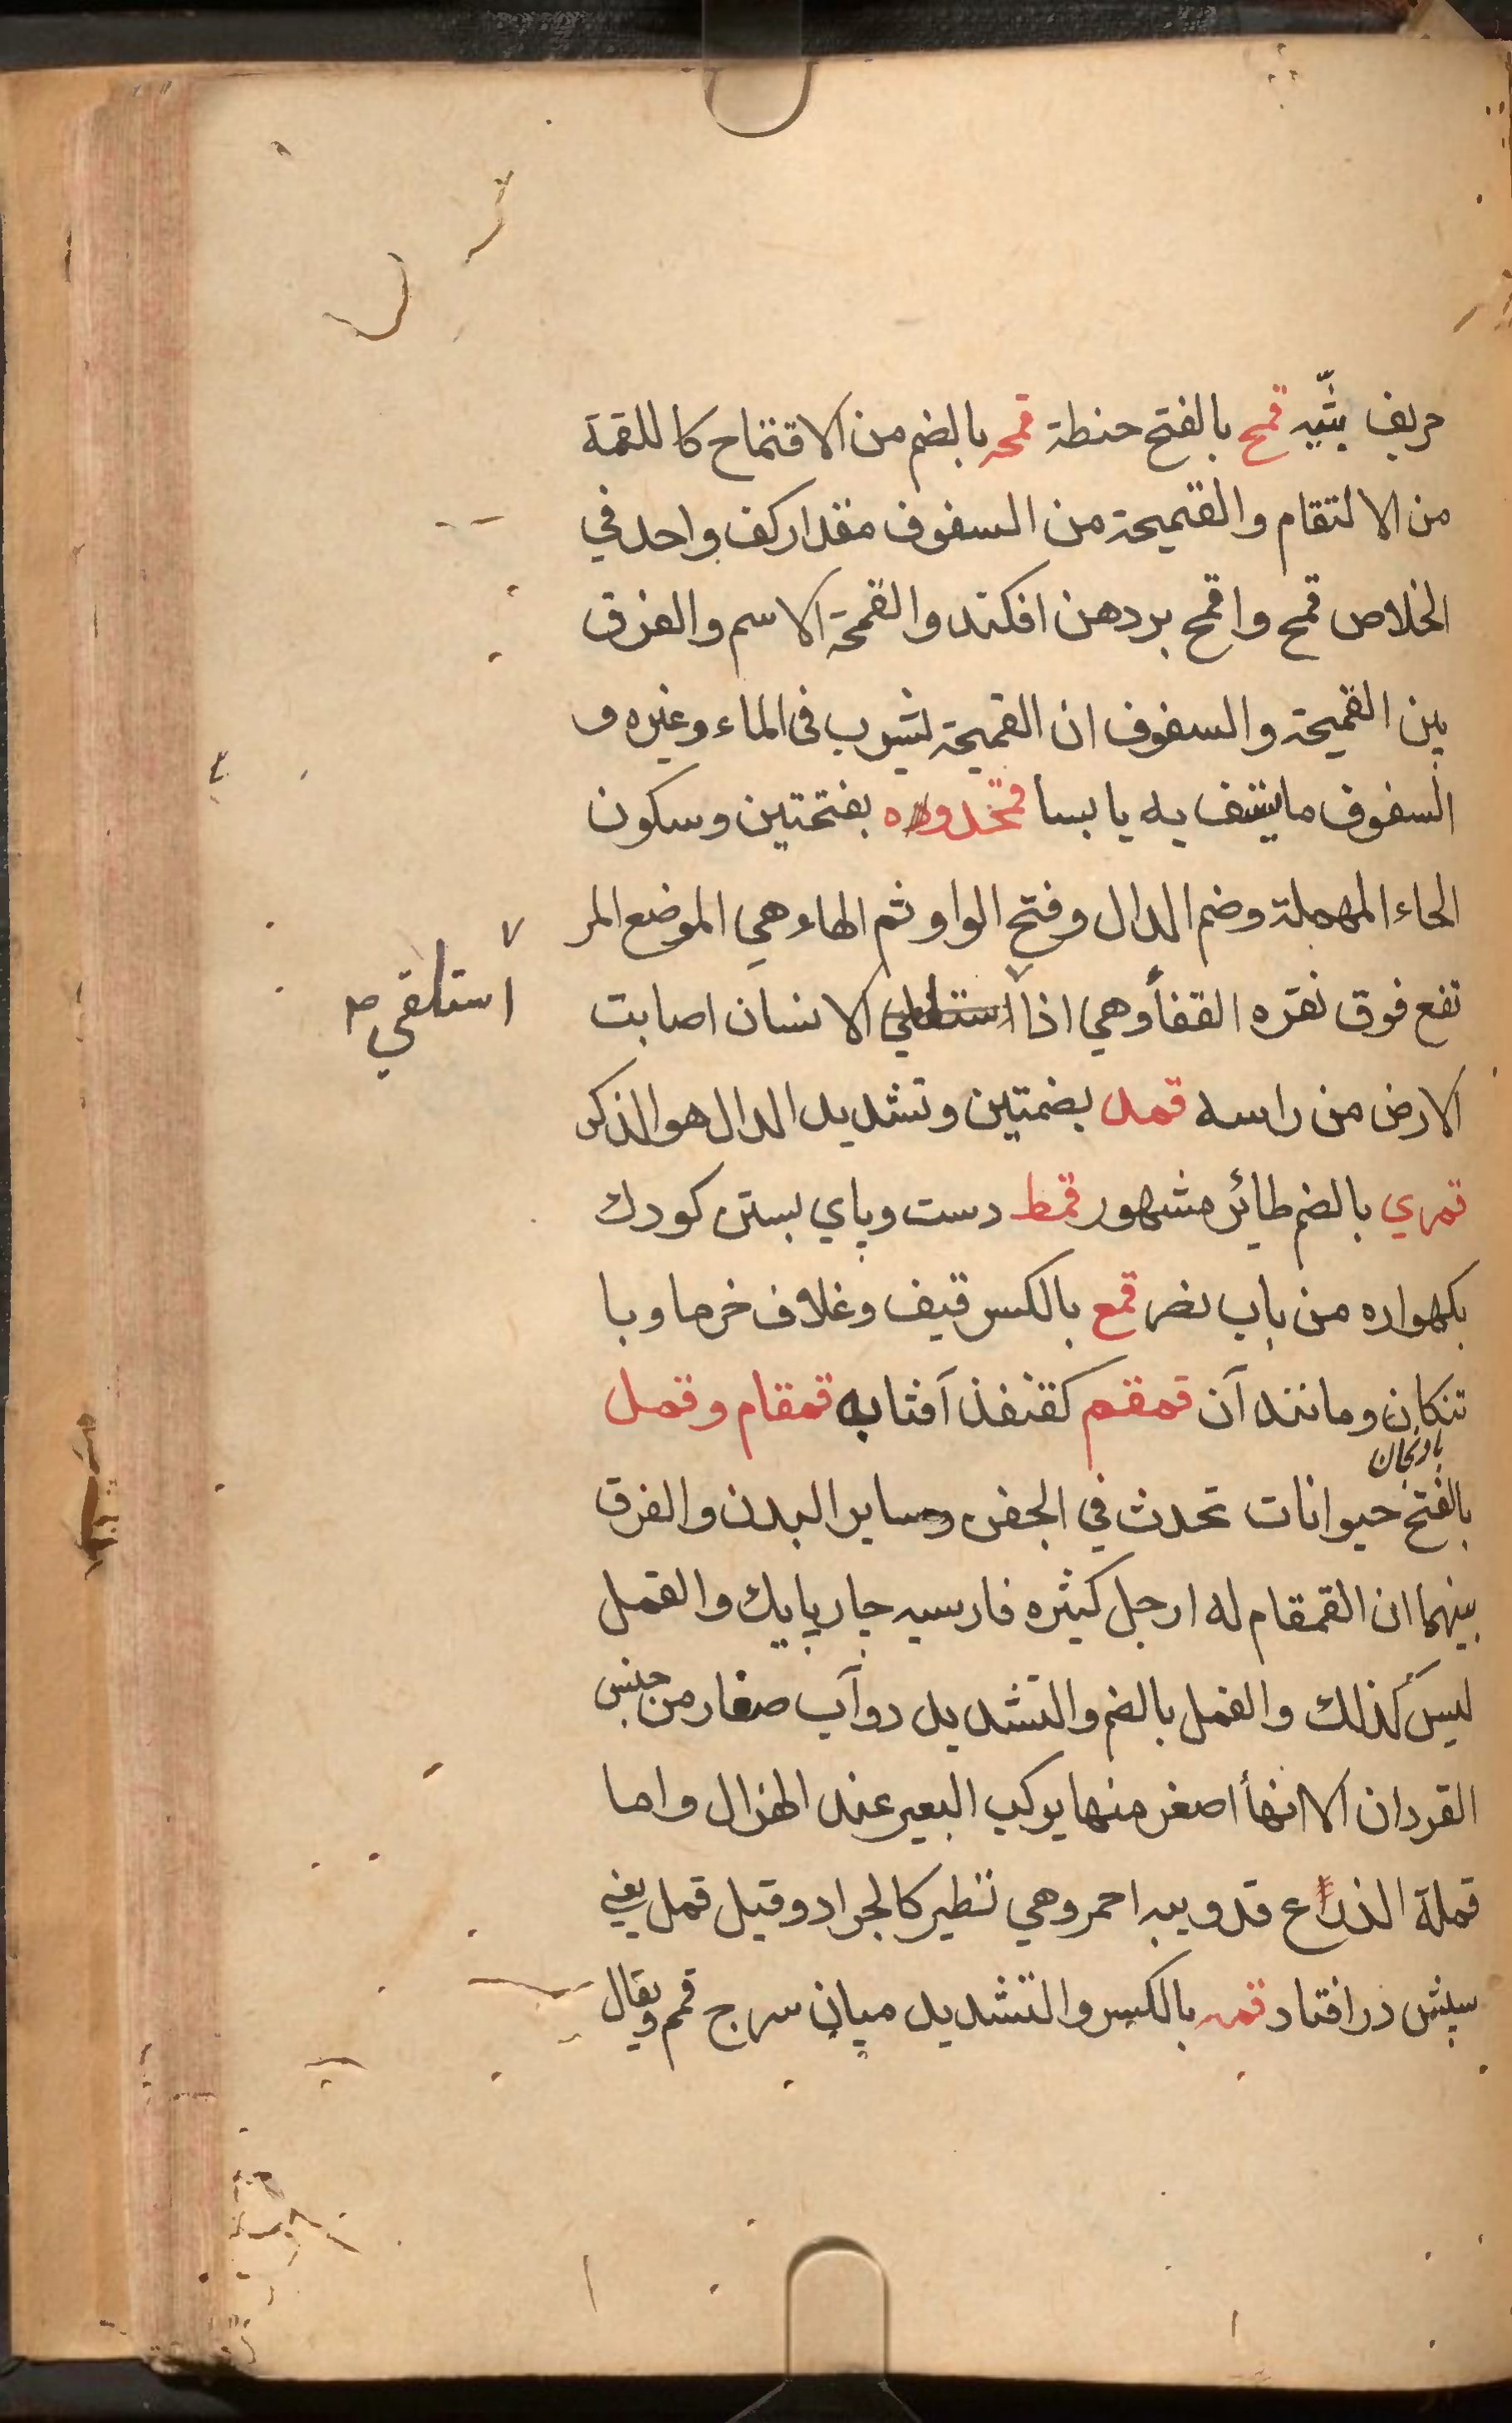 حريف بثّيه قمح بالفتح حنطة قمحه بالضم من الاقتماح كاللقمة
من الالتقام والقميحة من السفوف مقدار كف واحد في
الخلاص قمح واقمح بردهن افكند والقمحة الاسم والفرق
بين القميحة والسفوف ان القميحة يشرب فى الماء وغيره و
السفوف ما يسف به يابسا قمحدوه بفتحتين وسكون
الحاء المهملة وضم الدال وفتح الواو ثم الهاء هي الموضع المر
تفع فوق نقره القفا وهي اذا الانسان اصابت
استلقي
الارض من راسه قمد بضمتين وتشديد الدال هو الذكر
قمري بالضم طائر مشهور قمط دست وپاي بستن كودك
بكهواره من باب نصر قمع بالكسر قيف وغلاف خرما وبا
تنكان ومانند آن قمقم كقنفذ آفتابه قمقام وقمل
بادنجان
بالفتح حيوانات تحدث في الجفن وساير البدن والفرق
بينهما ان القمقام له ارجل كثيره فارسيه چارپايك والقمل
ليس كذلك والقمل بالضم والتشديد دوآب صغار من جنس
القردان الا انها اصغر منها يركب البعير عند الهزال واما
قملة الذراع قدويبه احمر وهي تطير كالجراد وقيل قمل يعني
سپش درافتاد قمه بالكسر والتشديد ميان سر ج قمم ويقال